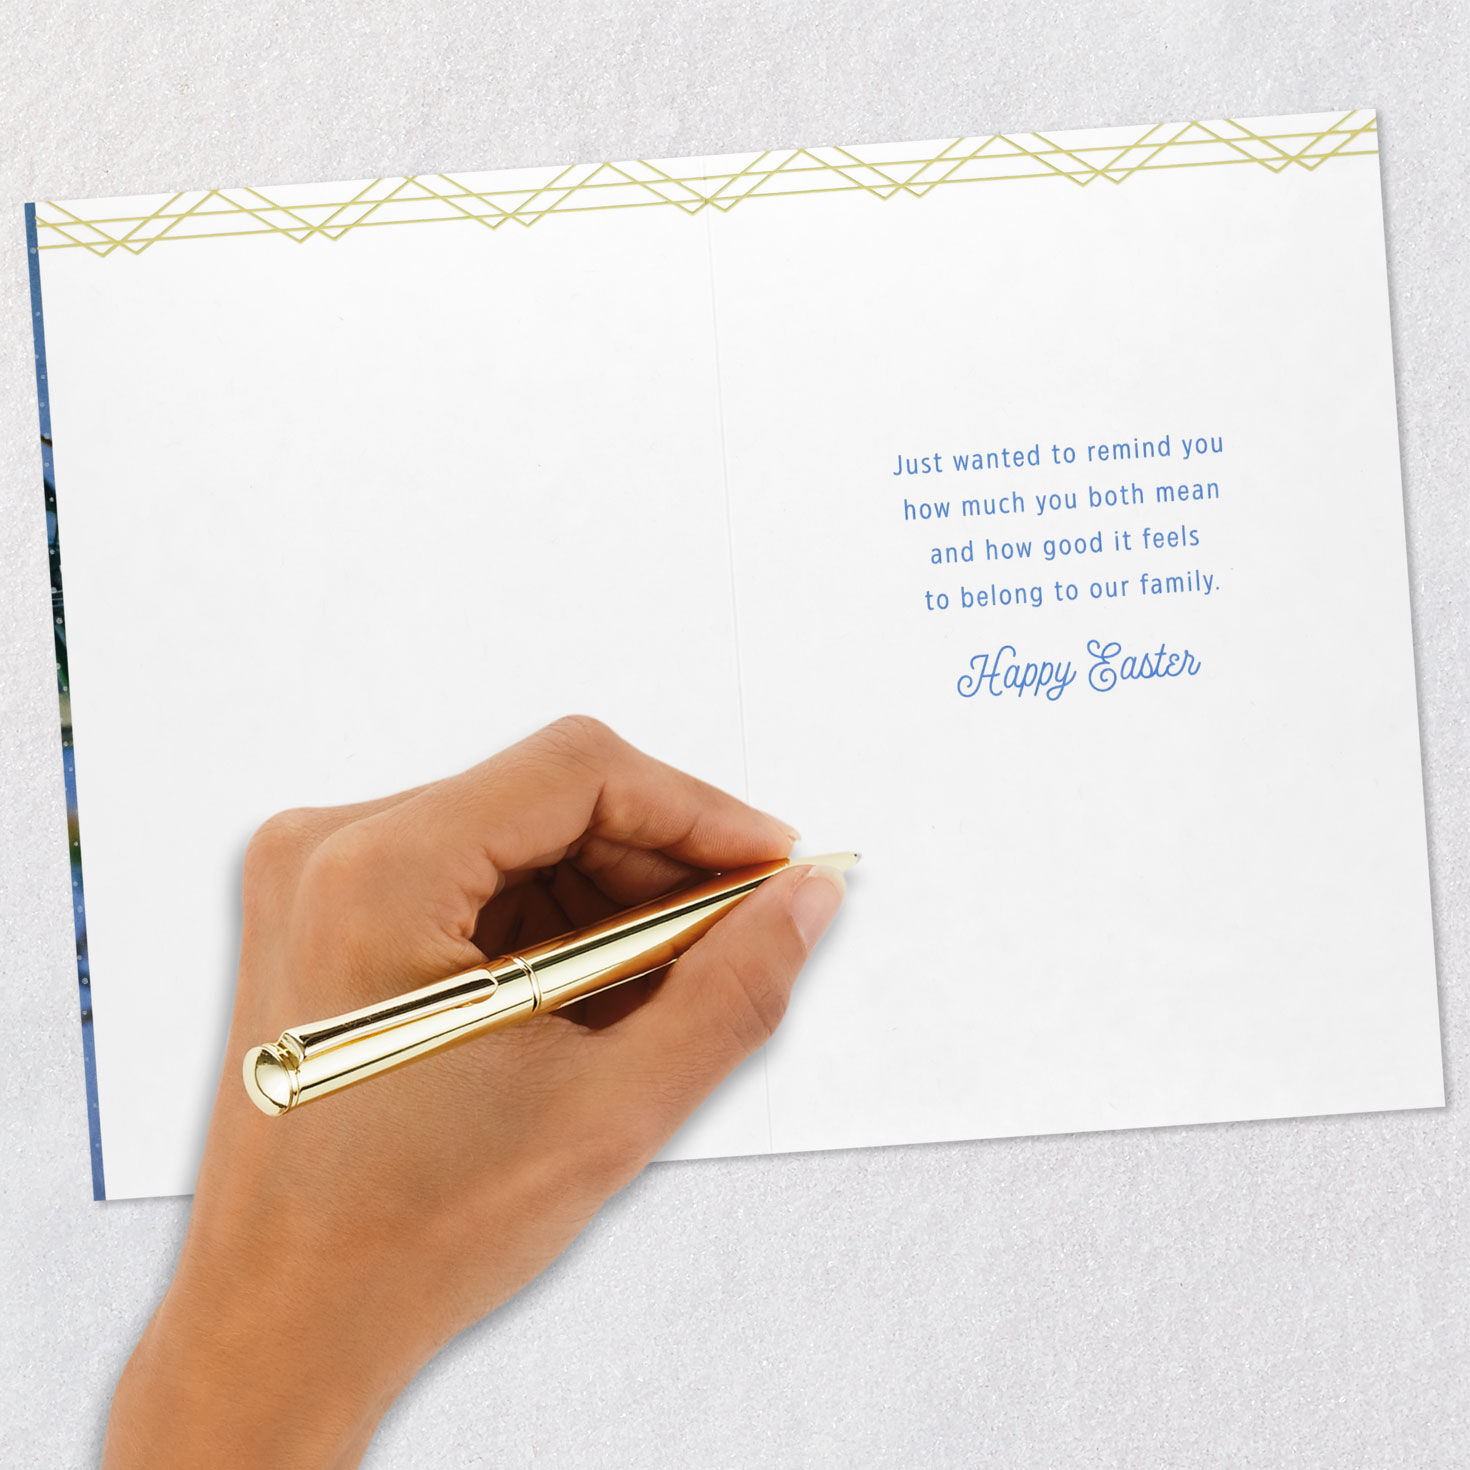 Just wanted to remind you
how much you both mean
and how good it feels
to belong to our family.
Happy Easter